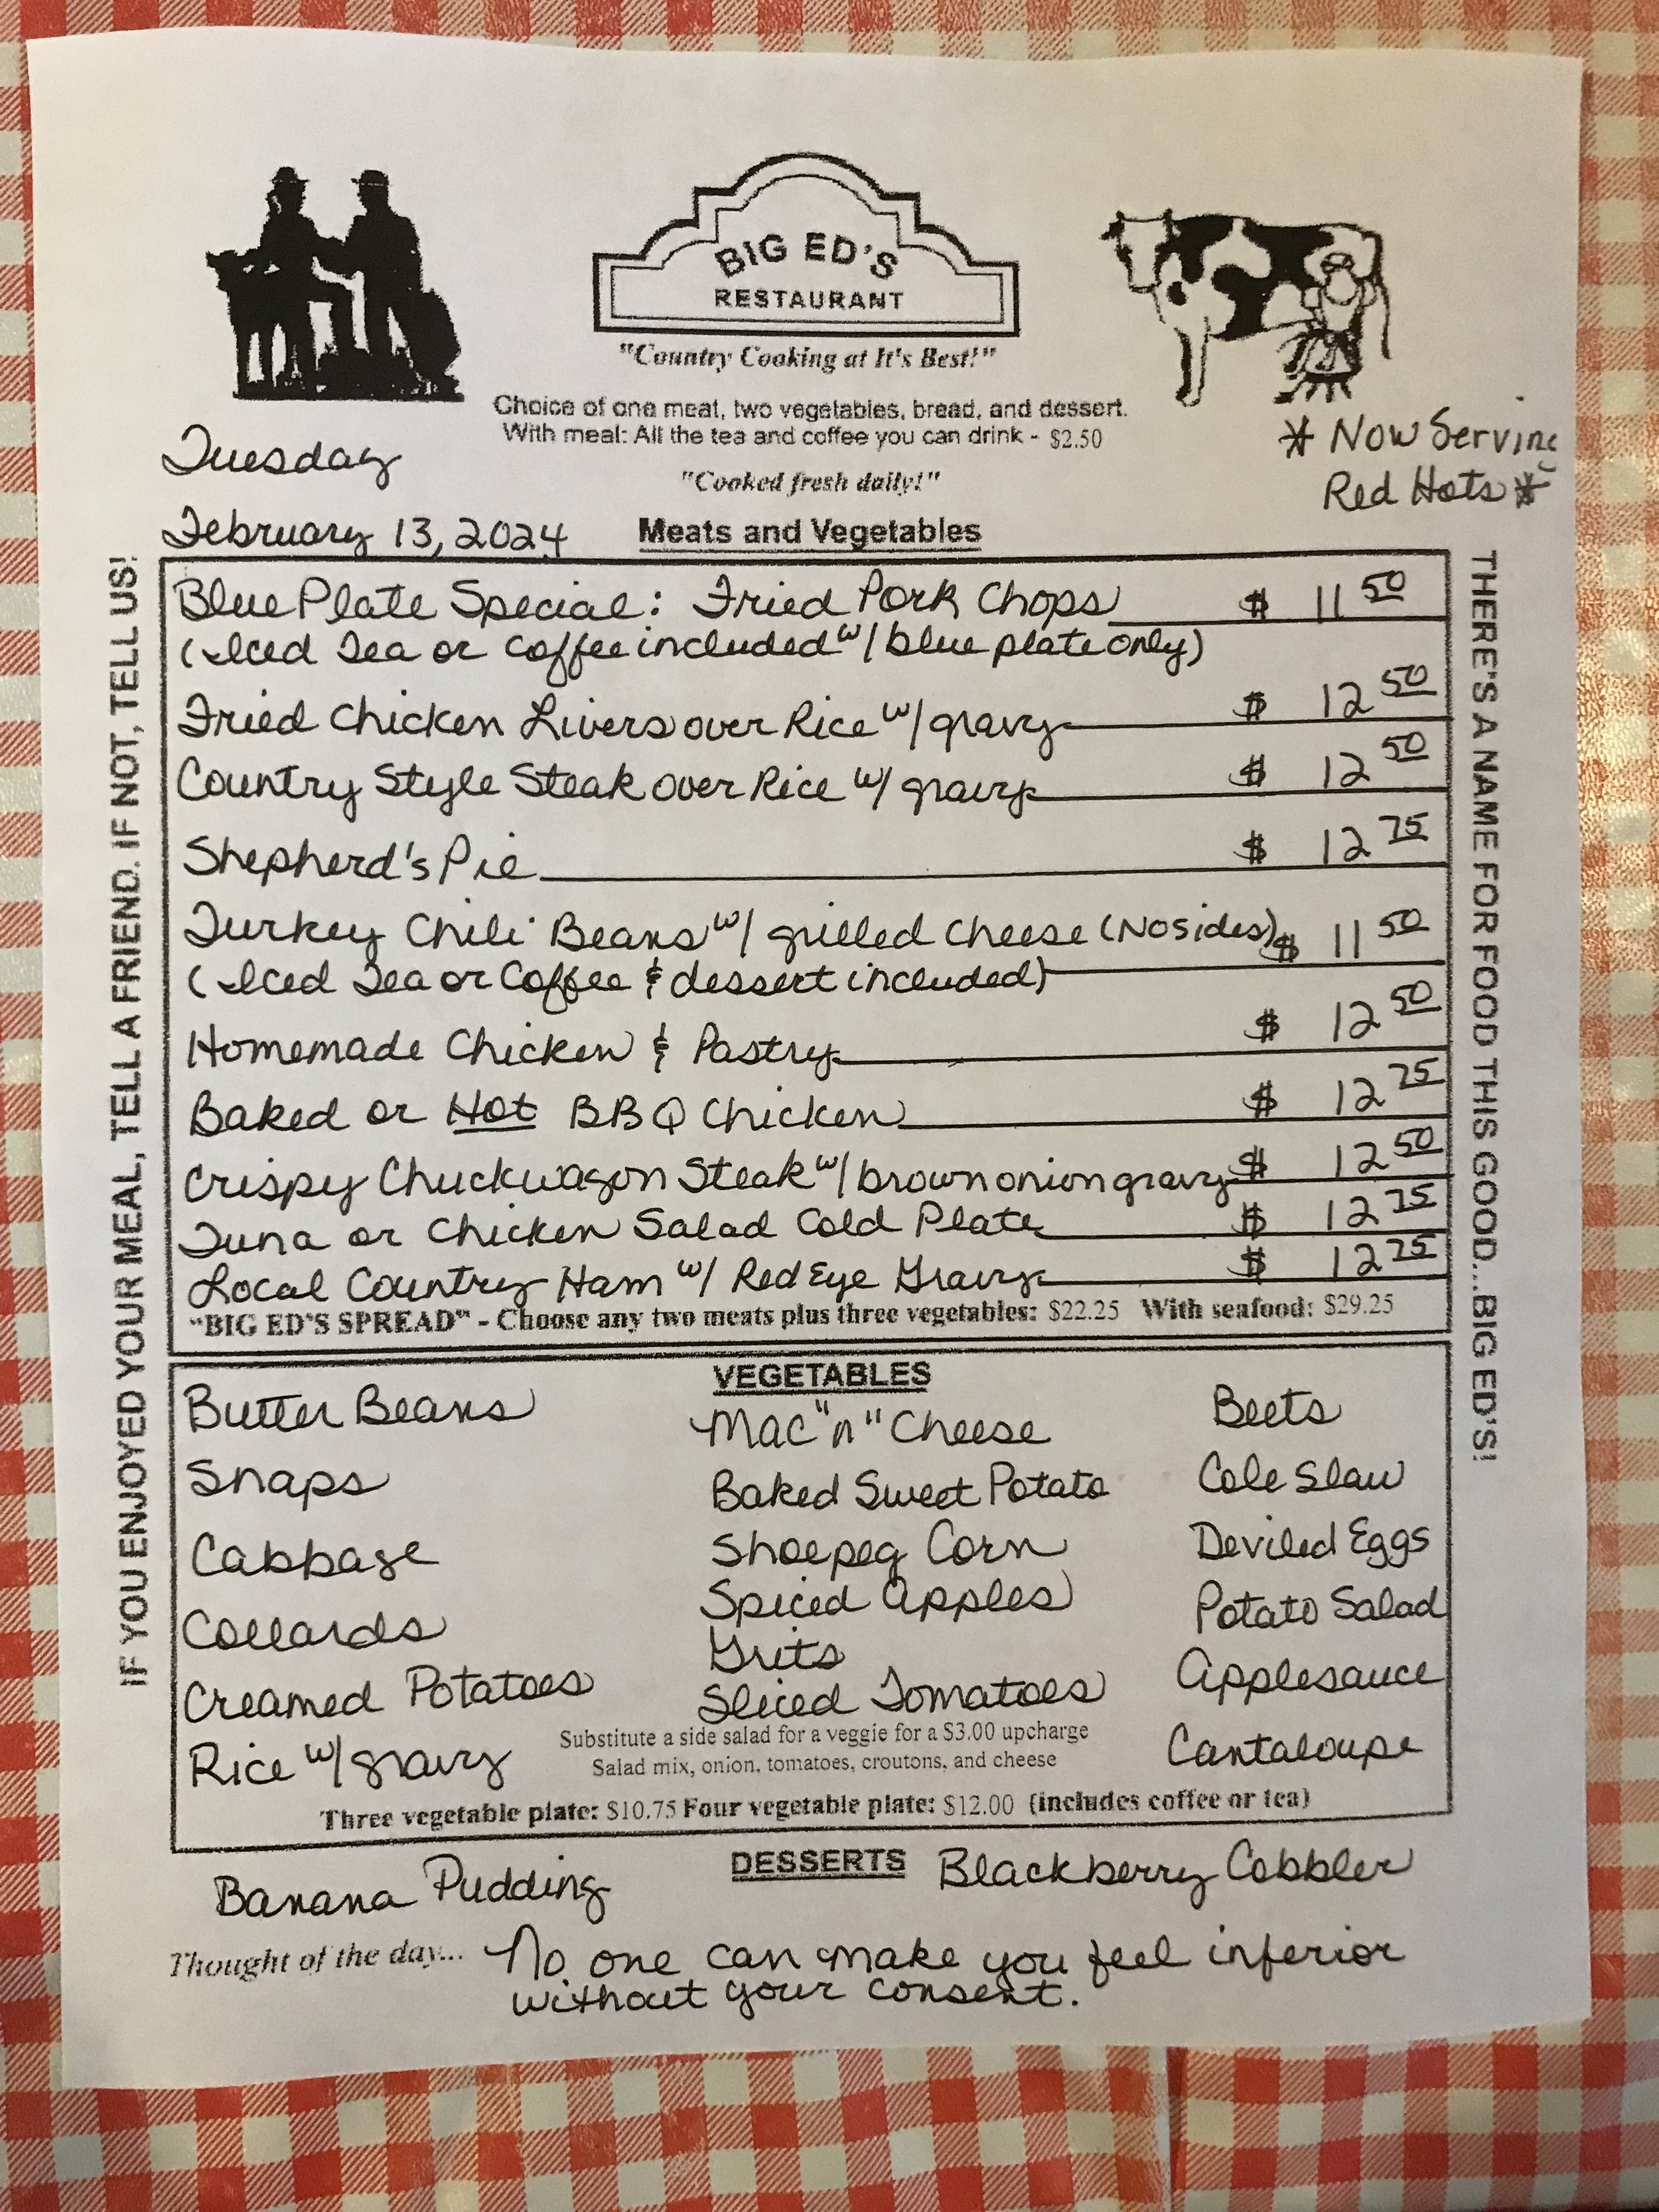 BIG ED'S
RESTAURANT
"Country Cooking at It's Best!"
Choice of one meat, two vegetables, bread, and dessert.
With meal: All the tea and coffee you can drink - $2.50
"Cooked fresh daily!"
* Now Serving
Red Hots *
Tuesday
February 13, 2024
Meats and Vegetables
IF YOU ENJOYED YOUR MEAL, TELL A FRIEND. IF NOT, TELL US!
Blue Plate Special: Fried Pork Chops $ 11 50
(Iced Tea or Coffee included w/ blue plate only)
Fried Chicken Livers over Rice w/ gravy $ 12 50
Country Style Steak over Rice w/ gravy $ 12 50
Shepherd's Pie $ 12 75
Turkey Chili Beans w/ grilled cheese (No sides) $ 11 50
(Iced Tea or Coffee & dessert included)
Homemade Chicken & Pastry $ 12 50
Baked or Hot BBQ Chicken $ 12 75
Crispy Chuckwagon Steak w/ brown onion gravy $ 12 50
Tuna or Chicken Salad Cold Plate $ 12 75
Local Country Ham w/ Red Eye Gravy $ 12 75
"BIG ED'S SPREAD" - Choose any two meats plus three vegetables: $22.25 With seafood: $29.25
THERE'S A NAME FOR FOOD THIS GOOD...BIG ED'S!
VEGETABLES
Butter Beans
Snaps
Cabbage
Collards
Creamed Potatoes
Rice w/ gravy
Mac "n" Cheese
Baked Sweet Potato
Shoepeg Corn
Spiced Apples
Grits
Sliced Tomatoes
Beets
Cole Slaw
Deviled Eggs
Potato Salad
Applesauce
Cantaloupe
Substitute a side salad for a veggie for a $3.00 upcharge
Salad mix, onion, tomatoes, croutons, and cheese
Three vegetable plate: $10.75 Four vegetable plate: $12.00 (includes coffee or tea)
DESSERTS
Banana Pudding
Blackberry Cobbler
Thought of the day... No one can make you feel inferior
without your consent.